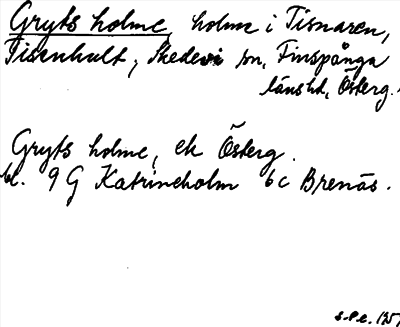 Gryts holme, holme i Tisnaren,
Tisenhult, Skedevi sn, Finspånga
länshd, Österg.
Gryts holme, ek Österg.
bl. 9 G Katrineholm 6c Brenäs.